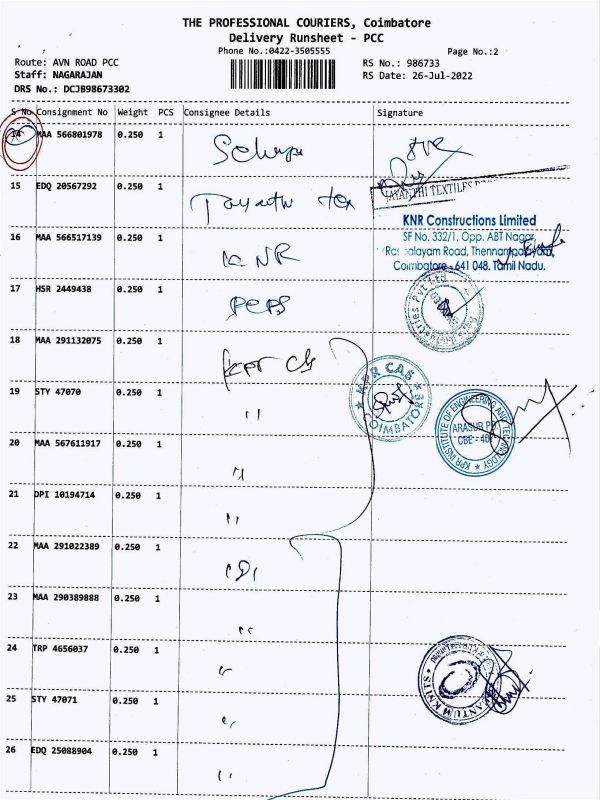 THE PROFESSIONAL COURIERS, Coimbatore
Delivery Runsheet - PCC
Phone No.:0422-3505555
Page No.:2
Route: AVN ROAD PCC
RS No.: 986733
Staff: NAGARAJAN
RS Date: 26-Jul-2022
DRS No.: DCJB98673302
S No Consignment No Weight PCS Consignee Details Signature
14 MAA 566801978 0.250 1
15 EDQ 20567292 0.250 1 Jayanthi tex
JAYANTHI TEXTILES
KNR Constructions Limited
SF No. 332/1, Opp. ABT Nagar,
Road, Thennampalayam,
Coimbatore - 641 048. Tamil Nadu.
16 MAA 566517139 0.250 1 KNR
17 HSR 2449438 0.250 1 PEPS
18 MAA 291132075 0.250 1 KPR CAS
KPR CAS
COIMBATORE
19 STY 47070 0.250 1 "
KPR INSTITUTE OF ENGINEERING AND TECHNOLOGY
ARASUR PO
CBE - 407
20 MAA 567611917 0.250 1 "
21 DPI 10194714 0.250 1 "
22 MAA 291022389 0.250 1
23 MAA 290389888 0.250 1 "
24 TRP 4656037 0.250 1 "
QUANTUM KNITS
25 STY 47071 0.250 1 "
26 EDQ 25088904 0.250 1 "